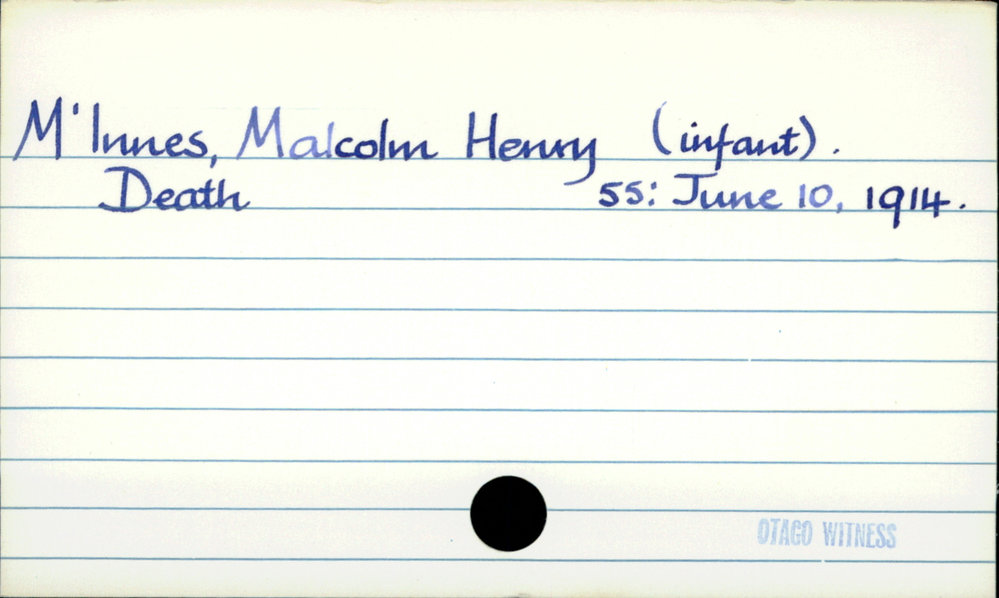 M'Innes, Malcolm Henry (infant).
Death 55: June 10, 1914.
OTAGO WITNESS